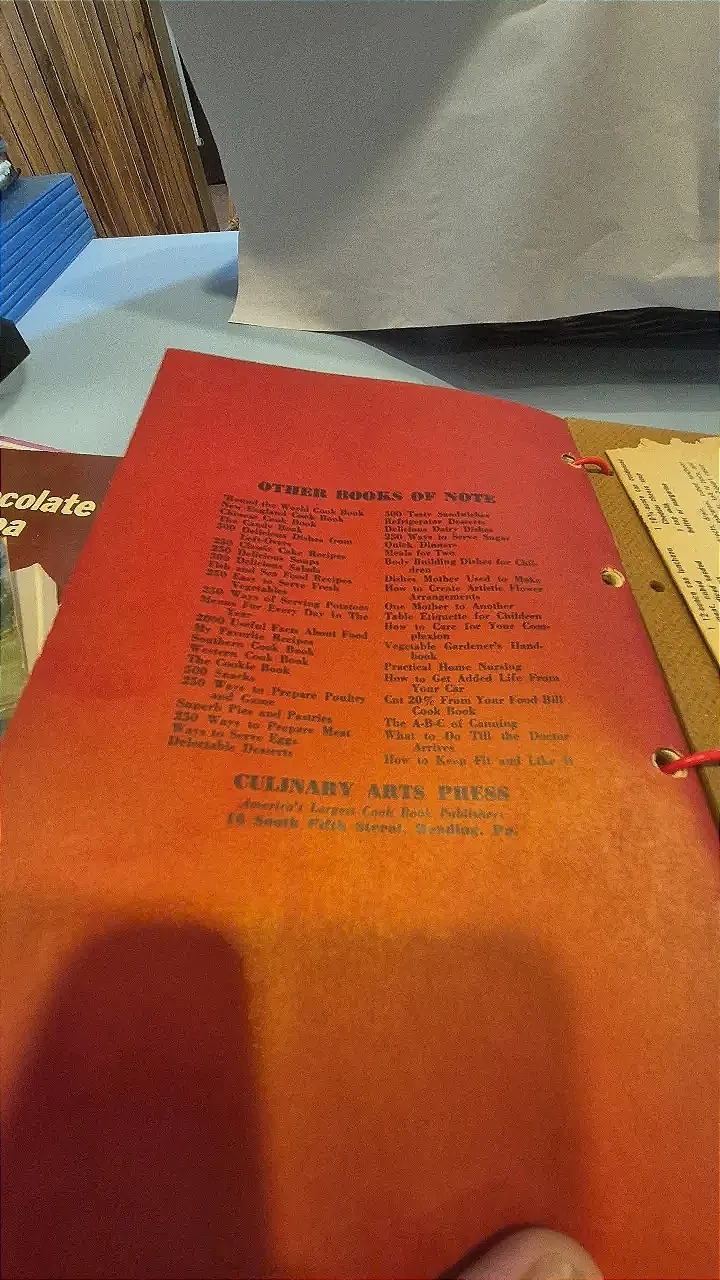 OTHER BOOKS OF NOTE
'Round the World Cook Book
New England Cook Book
Chinese Cook Book
The Candy Book
Delicious Dishes from
Left-Overs
250 Classic Cake Recipes
250 Delicious Soups
Delicious Salads
Fish and Sea Food Recipes
250 Easy to Serve Fresh
Vegetables
250 Ways of Serving Potatoes
Menus For Every Day in The
Year
2000 Useful Facts About Food
My Favorite Recipes
Southern Cook Book
Western Cook Book
The Cookie Book
500 Snacks
250 Ways to Prepare Poultry
and Game
Superb Pies and Pastries
250 Ways to Prepare Meat
Ways to Serve Eggs
Delectable Desserts
500 Tasty Sandwiches
Refrigerator Desserts
Delicious Dairy Dishes
250 Ways to Serve Sugar
Quick Dinners
Meals for Two
Body Building Dishes for Chil-
dren
Dishes Mother Used to Make
How to Create Artistic Flower
Arrangements
One Mother to Another
Table Etiquette for Children
How to Care for Your Com-
plexion
Vegetable Gardener's Hand-
book
Practical Home Nursing
How to Get Added Life From
Your Car
Cut 20% From Your Food Bill
Cook Book
The A-B-C of Canning
What to Do Till the Doctor
Arrives
How to Keep Fit and Like It
CULINARY ARTS PRESS
America's Largest Cook Book Publishers
16 South Fifth Street, Reading, Pa.
colate